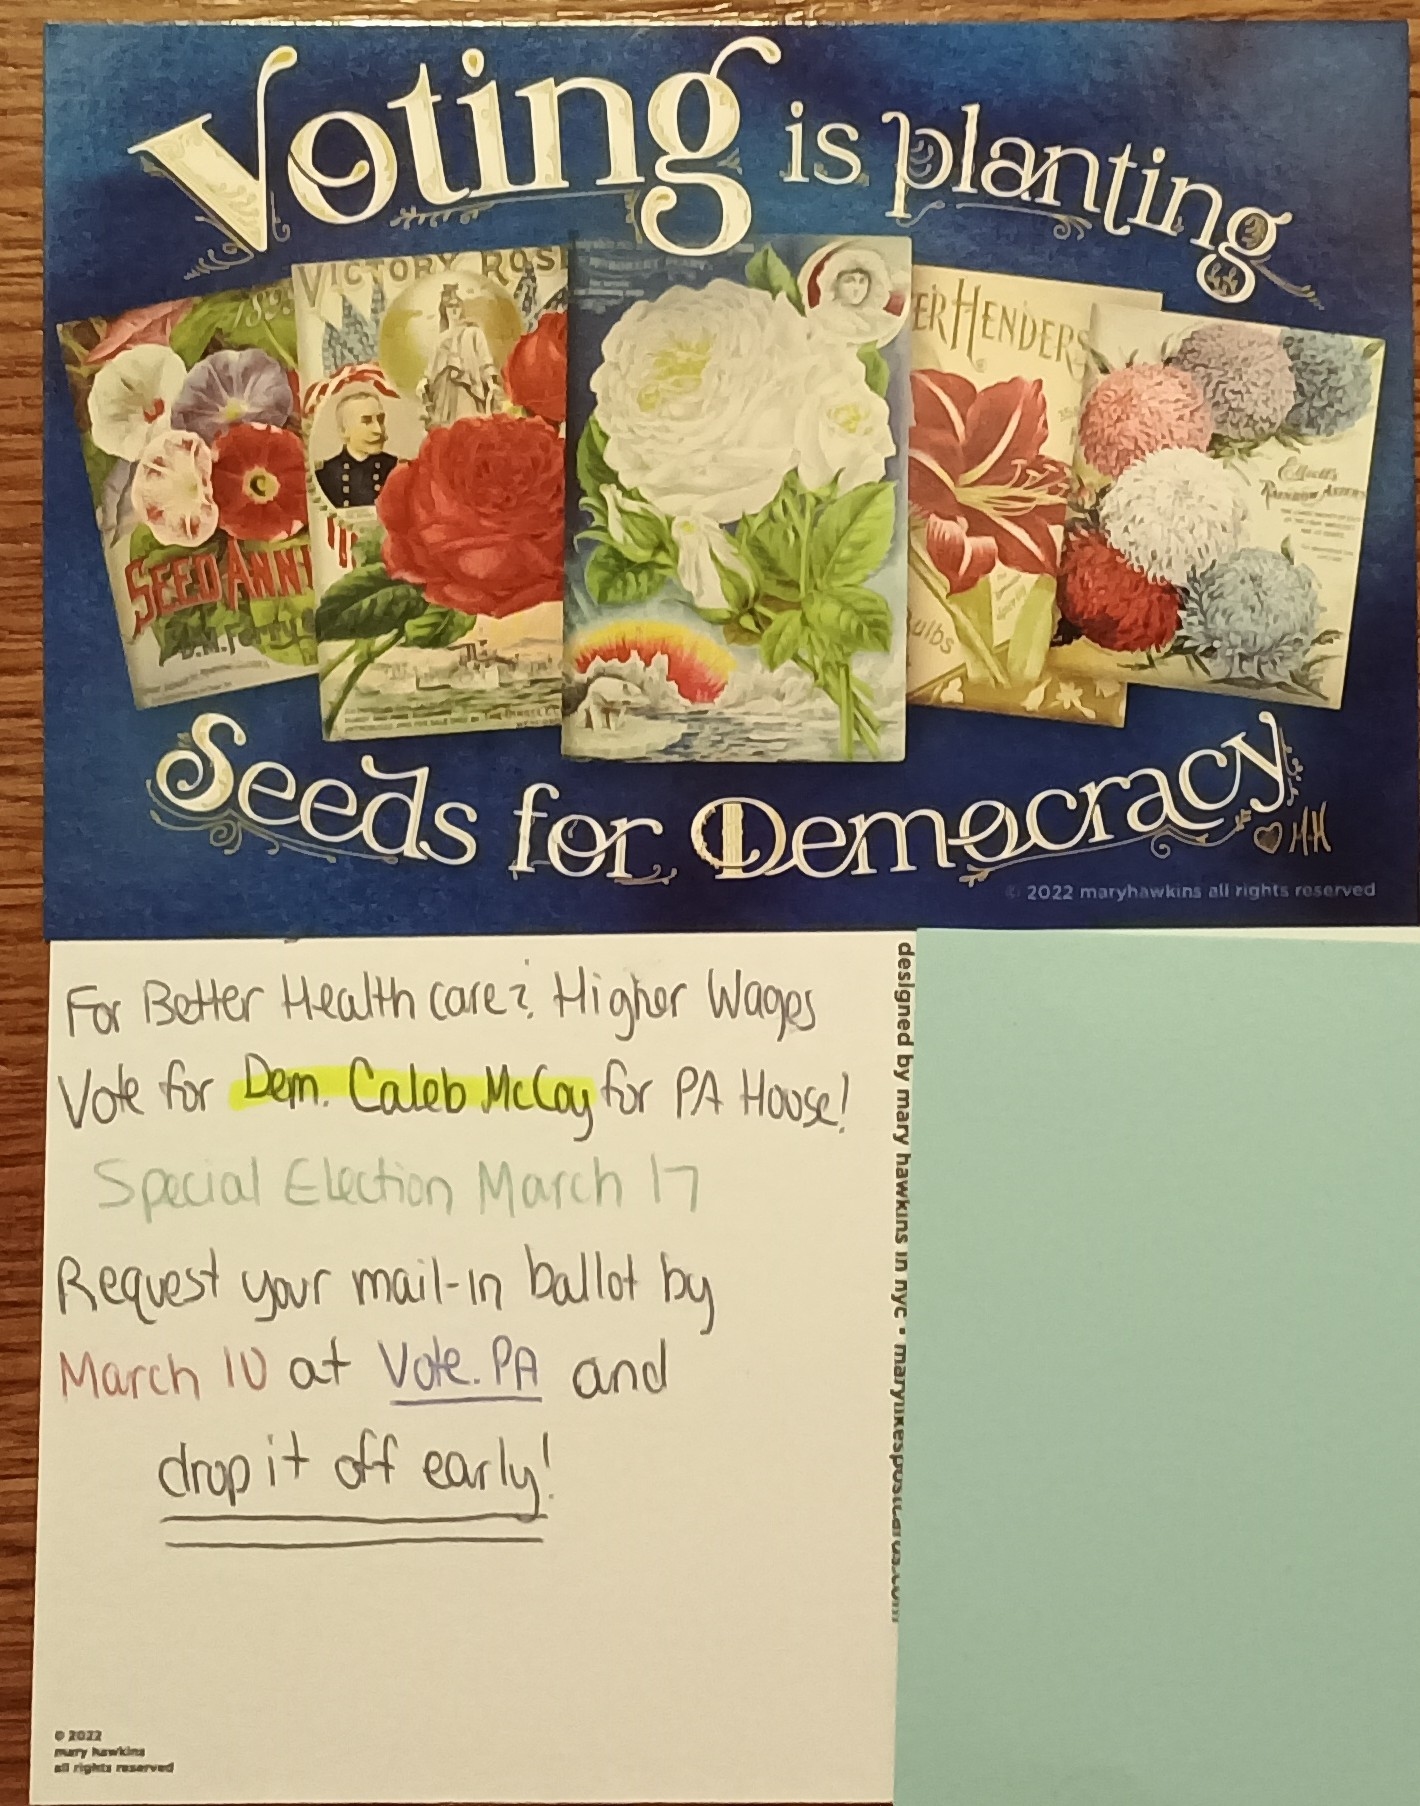 Voting is planting
1895
VICTORY ROS
ER HENDERS
SEED ANN
D.M. Ferry
Elliott's
RAINBOW ASTERS
Bulbs
Seeds for Democracy
HH
© 2022 maryhawkins all rights reserved
For Better Healthcare & Higher Wages
Vote for Dem. Caleb McCoy for PA House!
Special Election March 17
Request your mail-in ballot by
March 10 at Vote.PA and
drop it off early!
designed by mary hawkins in nyc • marylikespostcards.com
© 2022
mary hawkins
all rights reserved